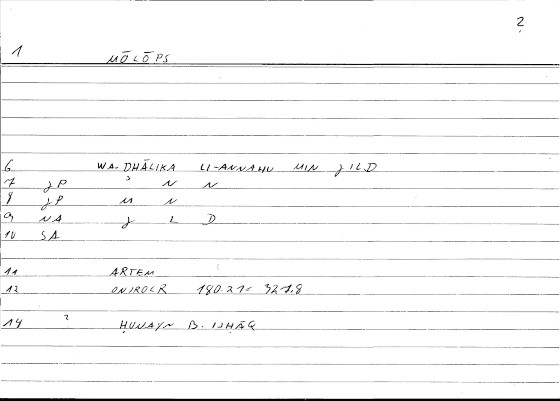 2
1 MŌLŌPS
6 WA-DHĀLIKA LI-ANNAHU MIN JILD
7 JP ʾ N N
8 JP M N
9 NA J L D
10 SA
11 ARTEM
12 ONIROCR 180.21= 321.8
14 2 ḤUNAYN B. ISḤĀQ